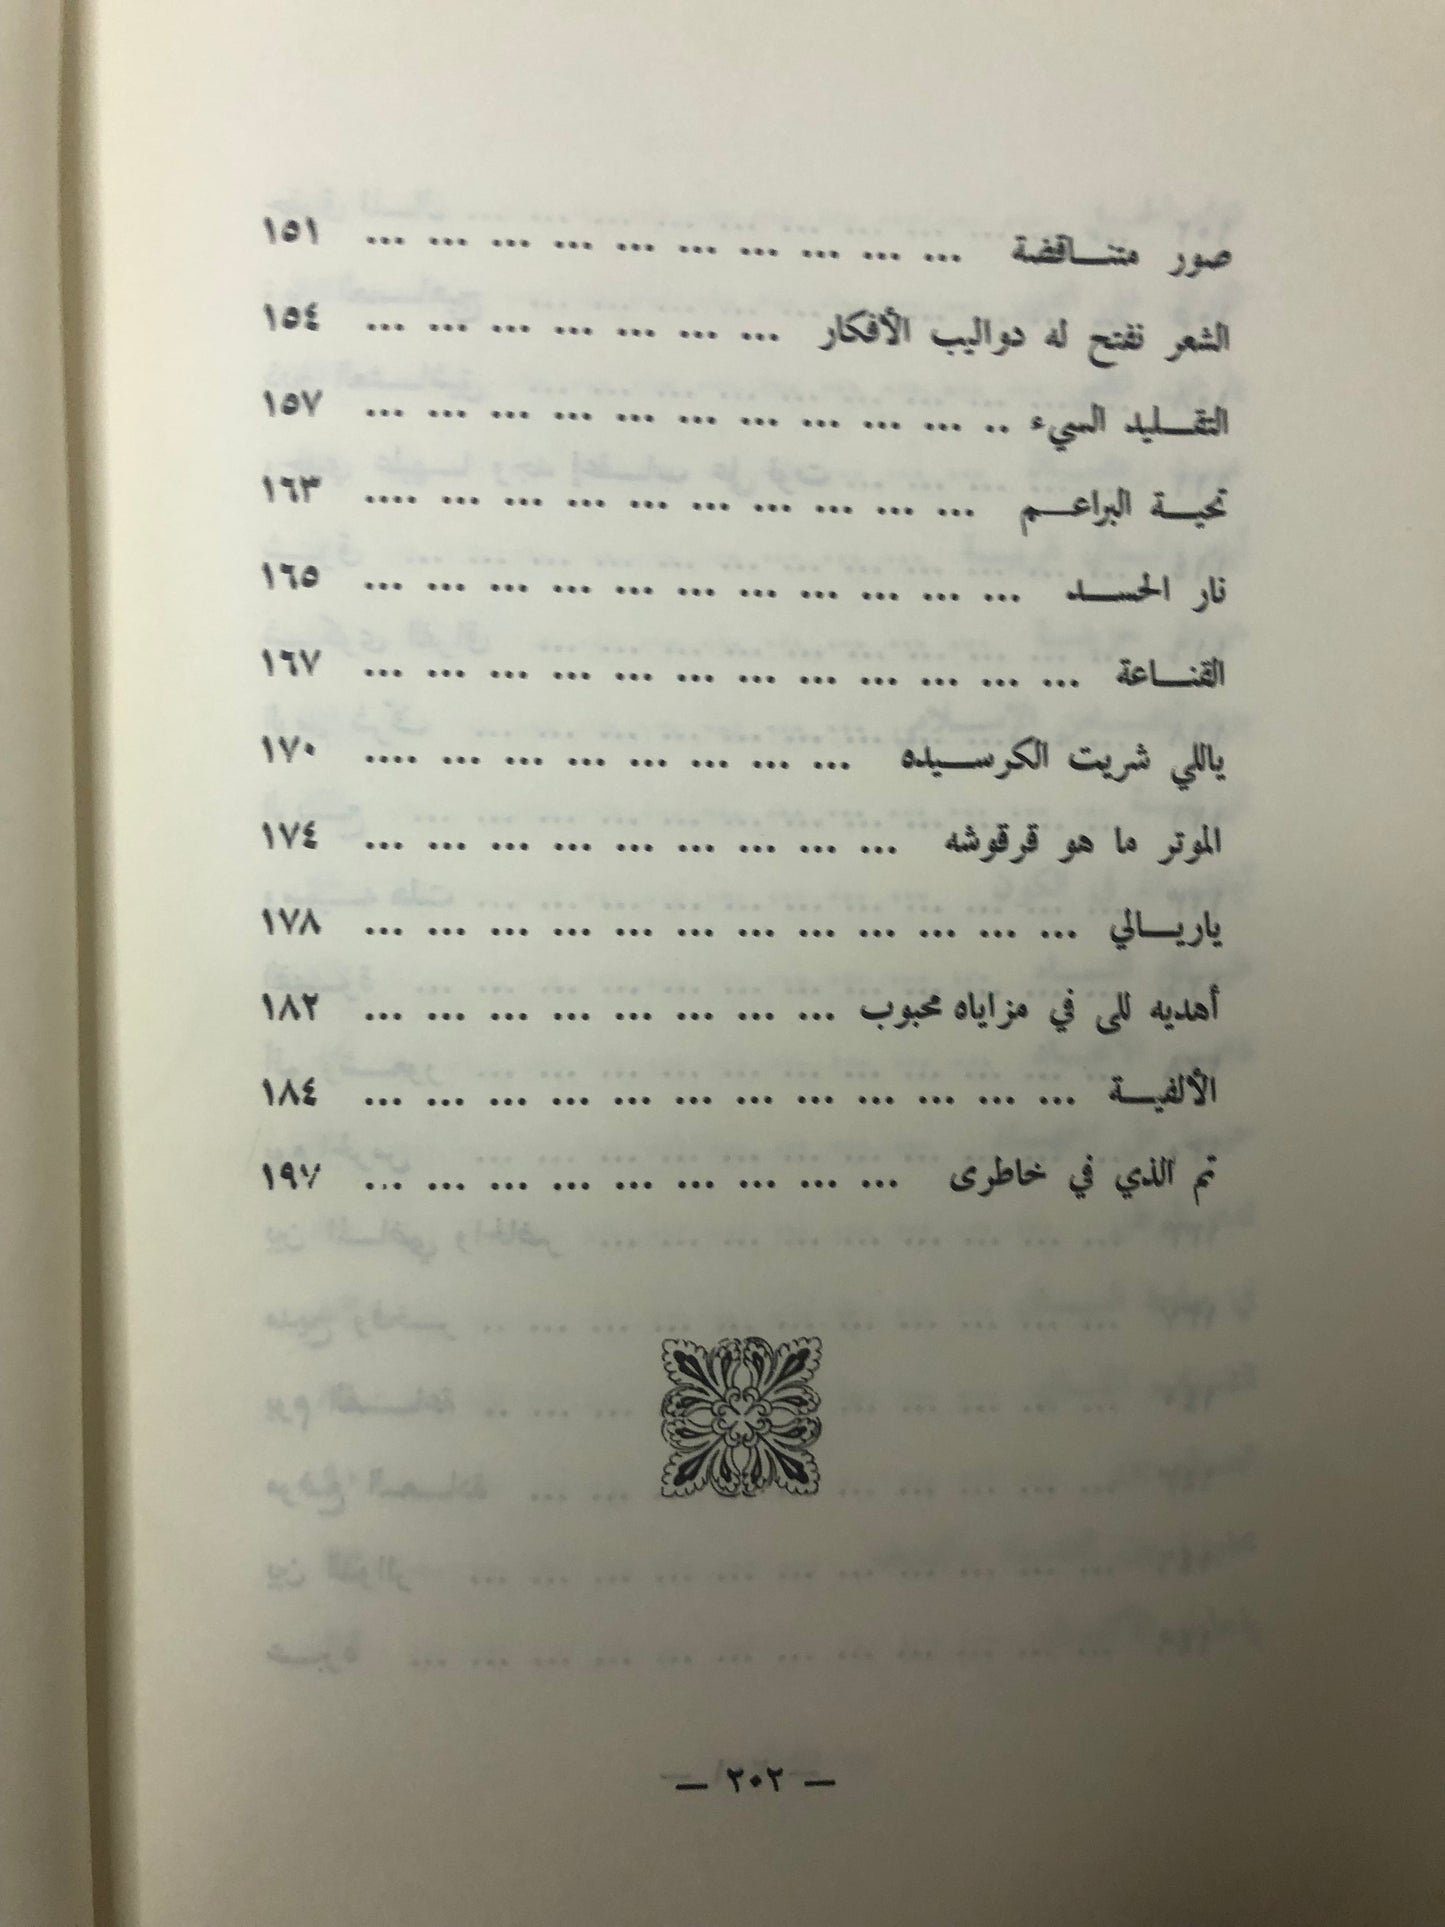 صور متناقضة ... ... ... ... ... ... ... ... ... ... ١٥١
الشعر نفتح له دواليب الأفكار ... ... ... ... ... ... ... ١٥٤
التقليد السيء .. ... ... ... ... ... ... ... ... ... ... ١٥٧
تحية البراعم ... ... ... ... ... ... ... ... ... .... ١٦٣
نار الحسد ... ... ... ... ... ... ... ... ... ... ... ١٦٥
القناعة ... ... ... ... ... ... ... ... ... ... ... ... ١٦٧
ياللي شريت الكرسيده ... ... ... ... ... ... ... .... ١٧٠
الموتر ما هو قرقوشه ... ... ... ... ... ... ... ... ... ١٧٤
ياريالي ... ... ... ... ... ... ... ... ... ... ... ... ١٧٨
أهديه للى في مزاياه محبوب ... ... ... ... ... ... ... ... ١٨٢
الألفية ... ... ... ... ... ... ... ... ... ... ... ... ١٨٤
تم الذي في خاطرى ... ... ... ... ... ... ... ... ... ١٩٧
— ٢٠٢ —